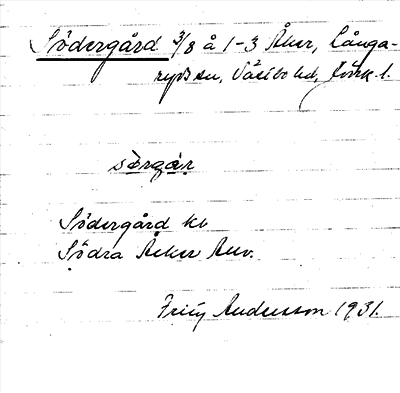 Södergård 3/8 å 1-3 Åker, Långa-
ryds sn, Västbo hd, Jönk. l.
sörgår
Södergård kv
Södra Åker
Andersson 1931.